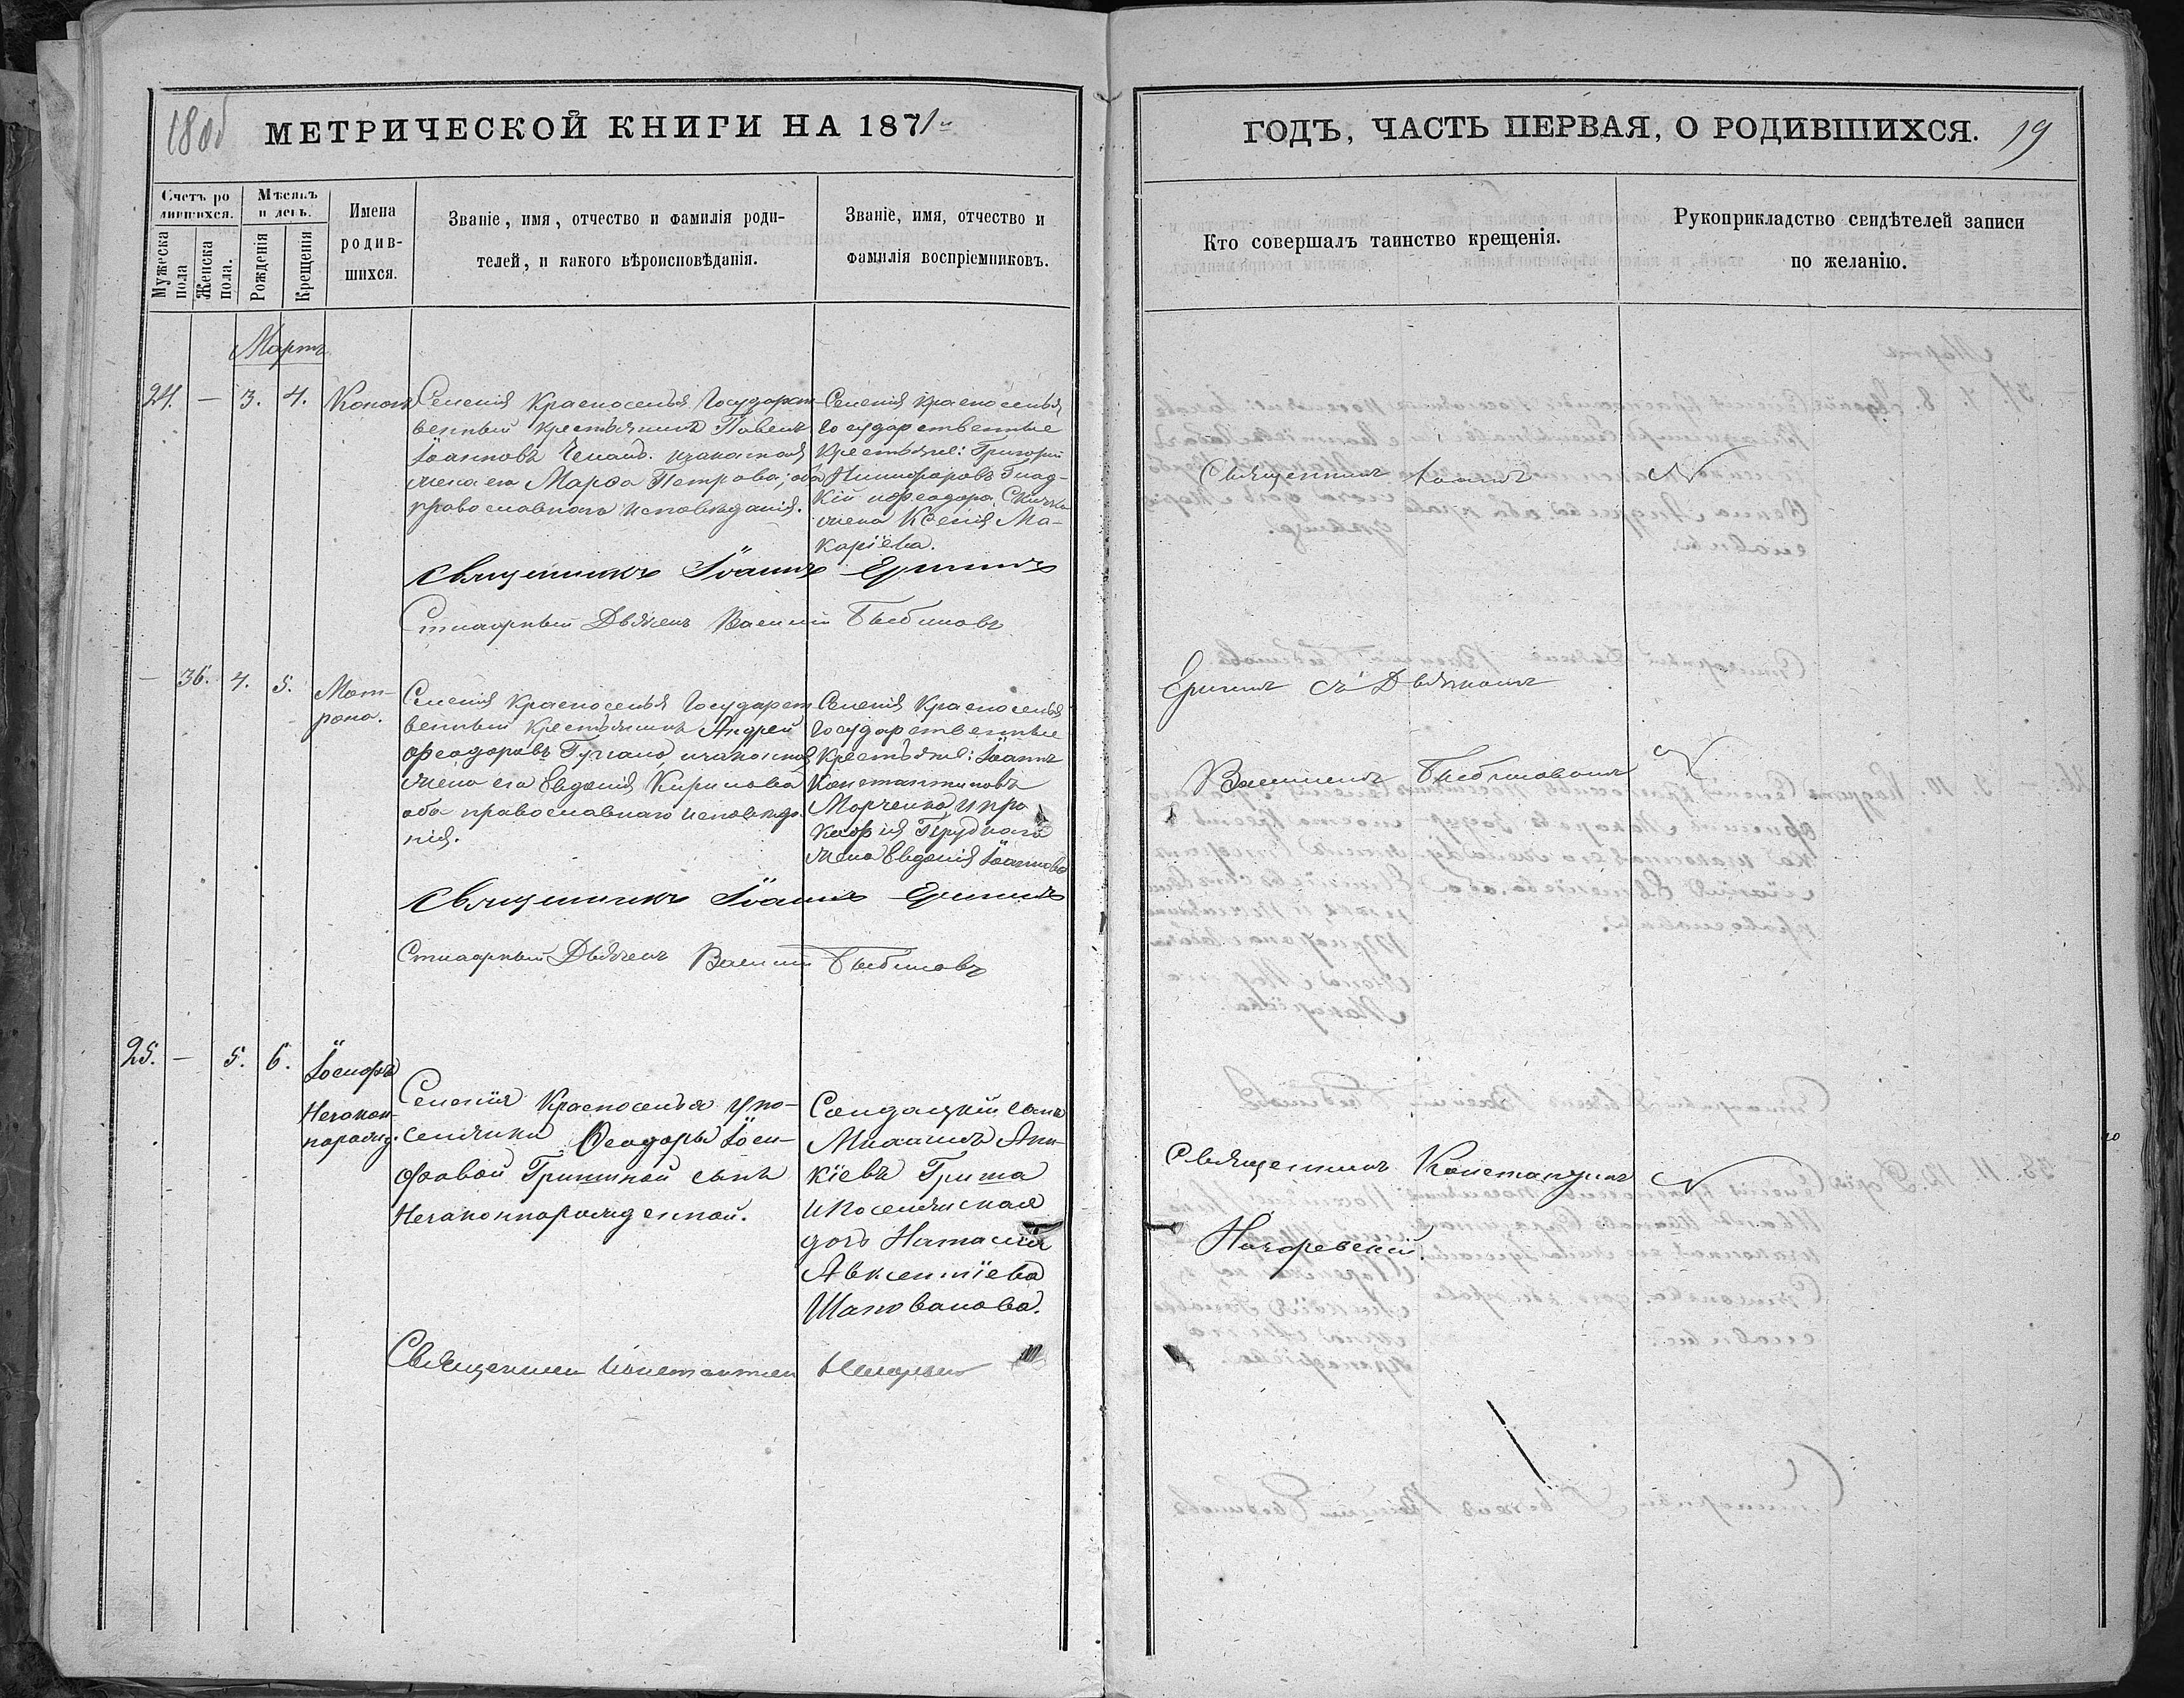 МЕТРИЧЕСКОЙ КНИГИ НА 1871
ГОДЪ, ЧАСТЬ ПЕРВАЯ, О РОДИВШИХСЯ.
19
Счетъ ро
дившихся.
Мужеска пола
Женска пола.
Мѣсяцъ
и день.
Рожденія
Крещенія
Имена
родив-
шихся.
Званіе, имя, отчество и фамилія роди-
телей, и какого вѣроисповѣданія.
Званіе, имя, отчество и
фамилія воспріемниковъ.
Кто совершалъ таинство крещенія.
Рукоприкладство свидѣтелей записи
по желанію.
Мартъ
24. — 3. 4. Кононъ
Селенія Красноселья Государст-
венный крестьянинъ Павелъ
Іоанновъ и законная
жена его Марѳа Петрова, оба
православнаго исповѣданія.
Селенія Красноселья
государственные
крестьяне: Григорій
Никифоровъ Глад-
кій и Феодора
жена Ксенія Ма-
каріева.
Священникъ Іоаннъ
Священникъ Іоаннъ Ерминъ
Стихарный Дьячекъ Василій
— 36. 4. 5. Мат-
рона.
Селенія Красноселья Государст
венный крестьянинъ Андрей
Феодоровъ и законная
жена его Евдокія Кирилова
оба православнаго исповѣда
нія.
Селенія Красноселья
государственные
крестьяне: Іоаннъ
Константиновъ
Марченко и Про
кофія Груднаго
жена Евдокія Іоаннова
Ерминъ съ Дьячкомъ
Василіемъ
Священникъ Іоаннъ Ерминъ
Стихарный Дьячекъ Василій
25. — 5. 6. Іосифъ
Незакон-
норожд.
Селенія Красноселья у по-
селянки Ѳеодоры Іоси-
фовой сынъ
Незаконнорожденной.
Солдатскій сынъ
Михаилъ Ани-
кіевъ Гриша
и поселянская
дочь Наталія
Авксентіева
Шаповалова.
Священникъ Константинъ
Священникъ Константинъ